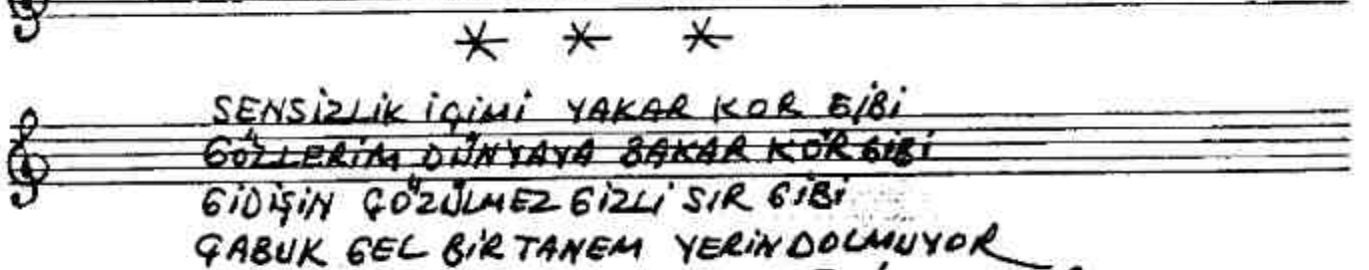 SENSİZLİK İÇİMİ YAKAR KOR GİBİ
GÖZLERİM DÜNYAYA BAKAR KÖR GİBİ
GİDİŞİN ÇÖZÜLMEZ GİZLİ SIR GİBİ
ÇABUK GEL BİR TANEM YERİN DOLMUYOR